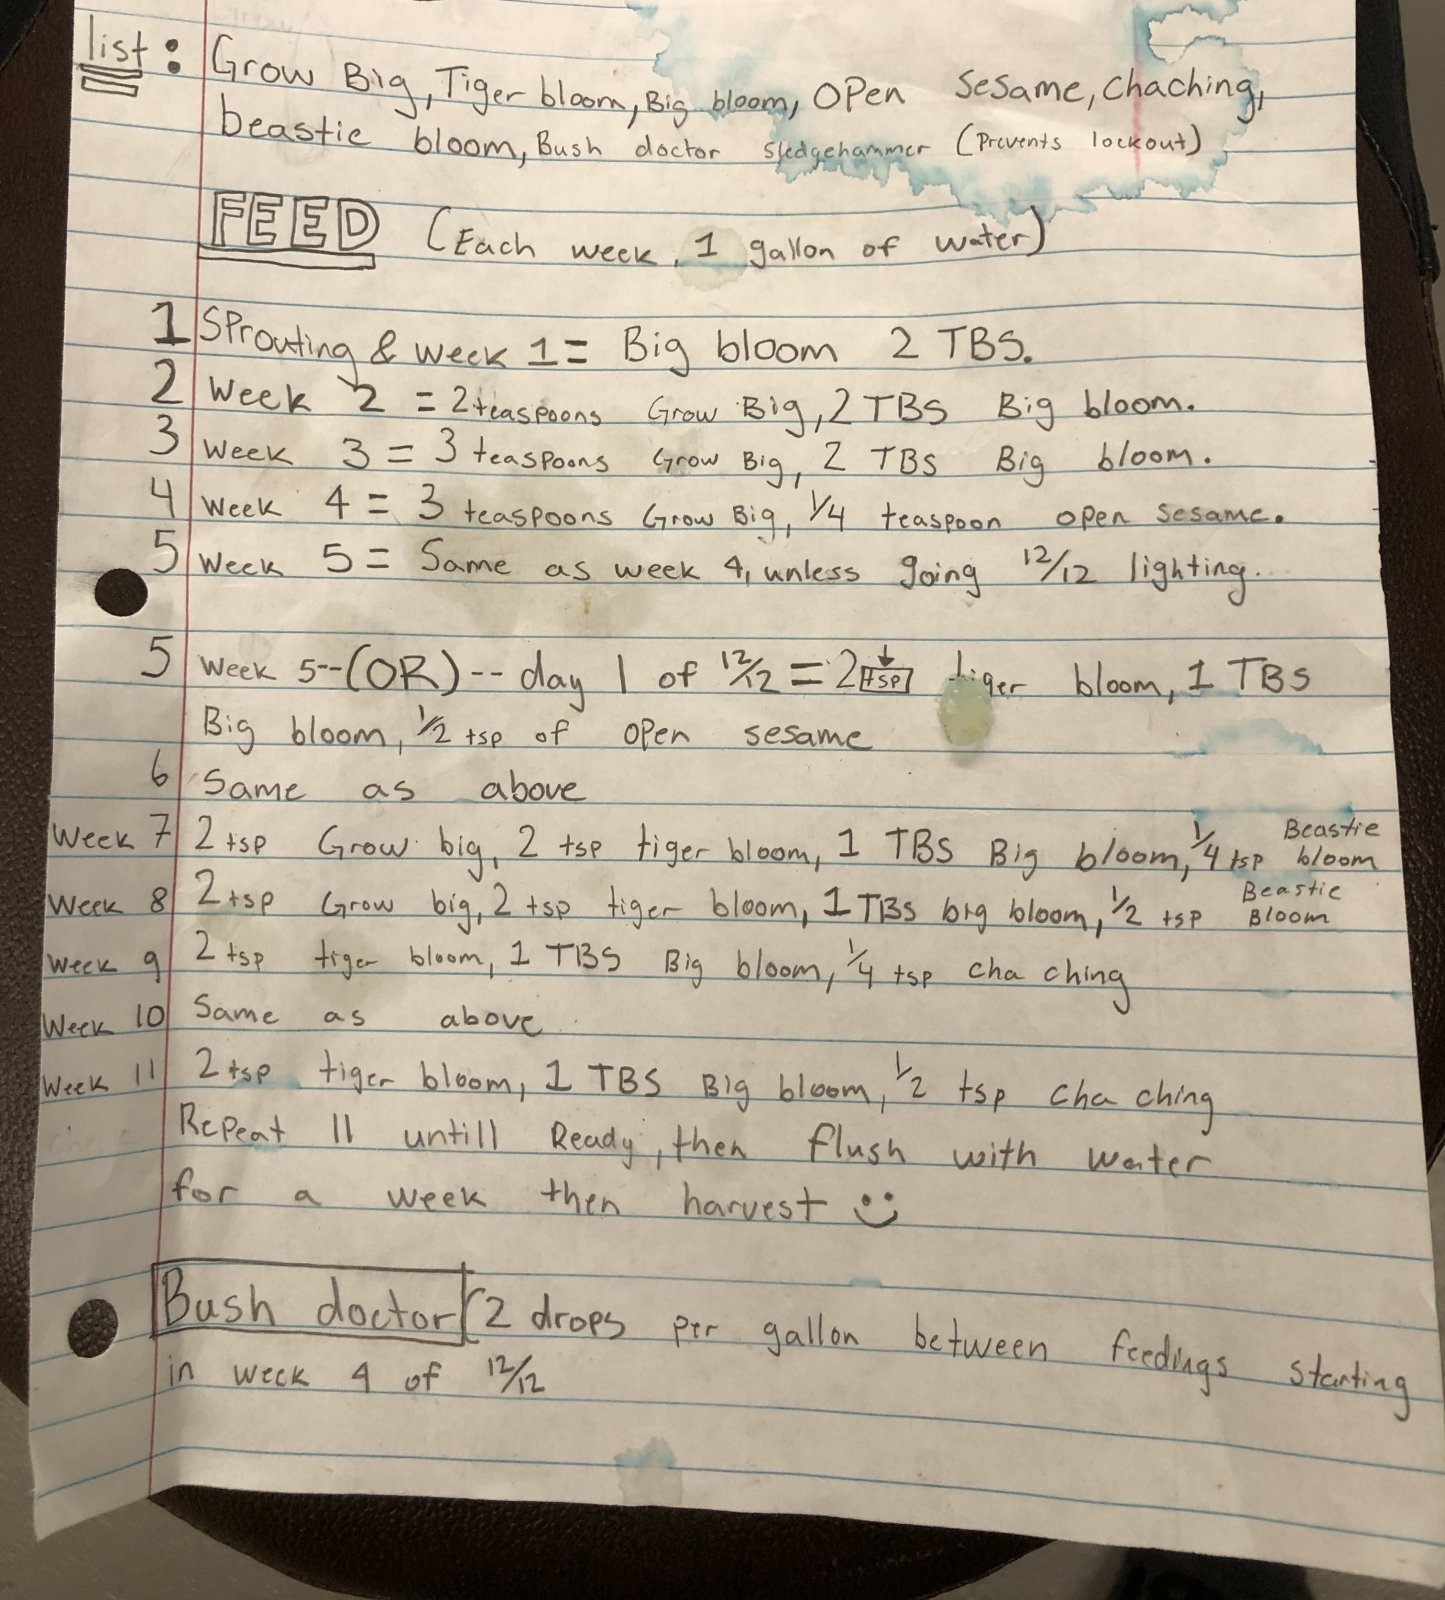 list: Grow Big, Tiger bloom, Big bloom, Open Sesame, Chaching,
beastie bloom, Bush doctor Sledgehammer (Prevents lockout)
FEED (Each week, 1 gallon of water)
1 Sprouting & week 1 = Big bloom 2 TBS.
2 Week 2 = 2 teaspoons Grow Big, 2 TBS Big bloom.
3 Week 3 = 3 teaspoons Grow Big, 2 TBS Big bloom.
4 Week 4 = 3 teaspoons Grow Big, 1/4 teaspoon open sesame.
5 Week 5 = Same as week 4, unless going 12/12 lighting.
5 Week 5--(OR)-- day 1 of 12/12 = 2 tsp tiger bloom, 1 TBS
Big bloom, 1/2 tsp of open sesame
6 Same as above
Week 7 2 tsp Grow big, 2 tsp tiger bloom, 1 TBS Big bloom, 1/4 tsp Beastie bloom
Week 8 2 tsp Grow big, 2 tsp tiger bloom, 1 TBS big bloom, 1/2 tsp Beastie Bloom
Week 9 2 tsp tiger bloom, 1 TBS Big bloom, 1/4 tsp cha ching
Week 10 Same as above
Week 11 2 tsp tiger bloom, 1 TBS Big bloom, 1/2 tsp cha ching
Repeat 11 untill Ready, then flush with water
for a week then harvest :)
Bush doctor (2 drops per gallon between feedings starting
in week 4 of 12/12